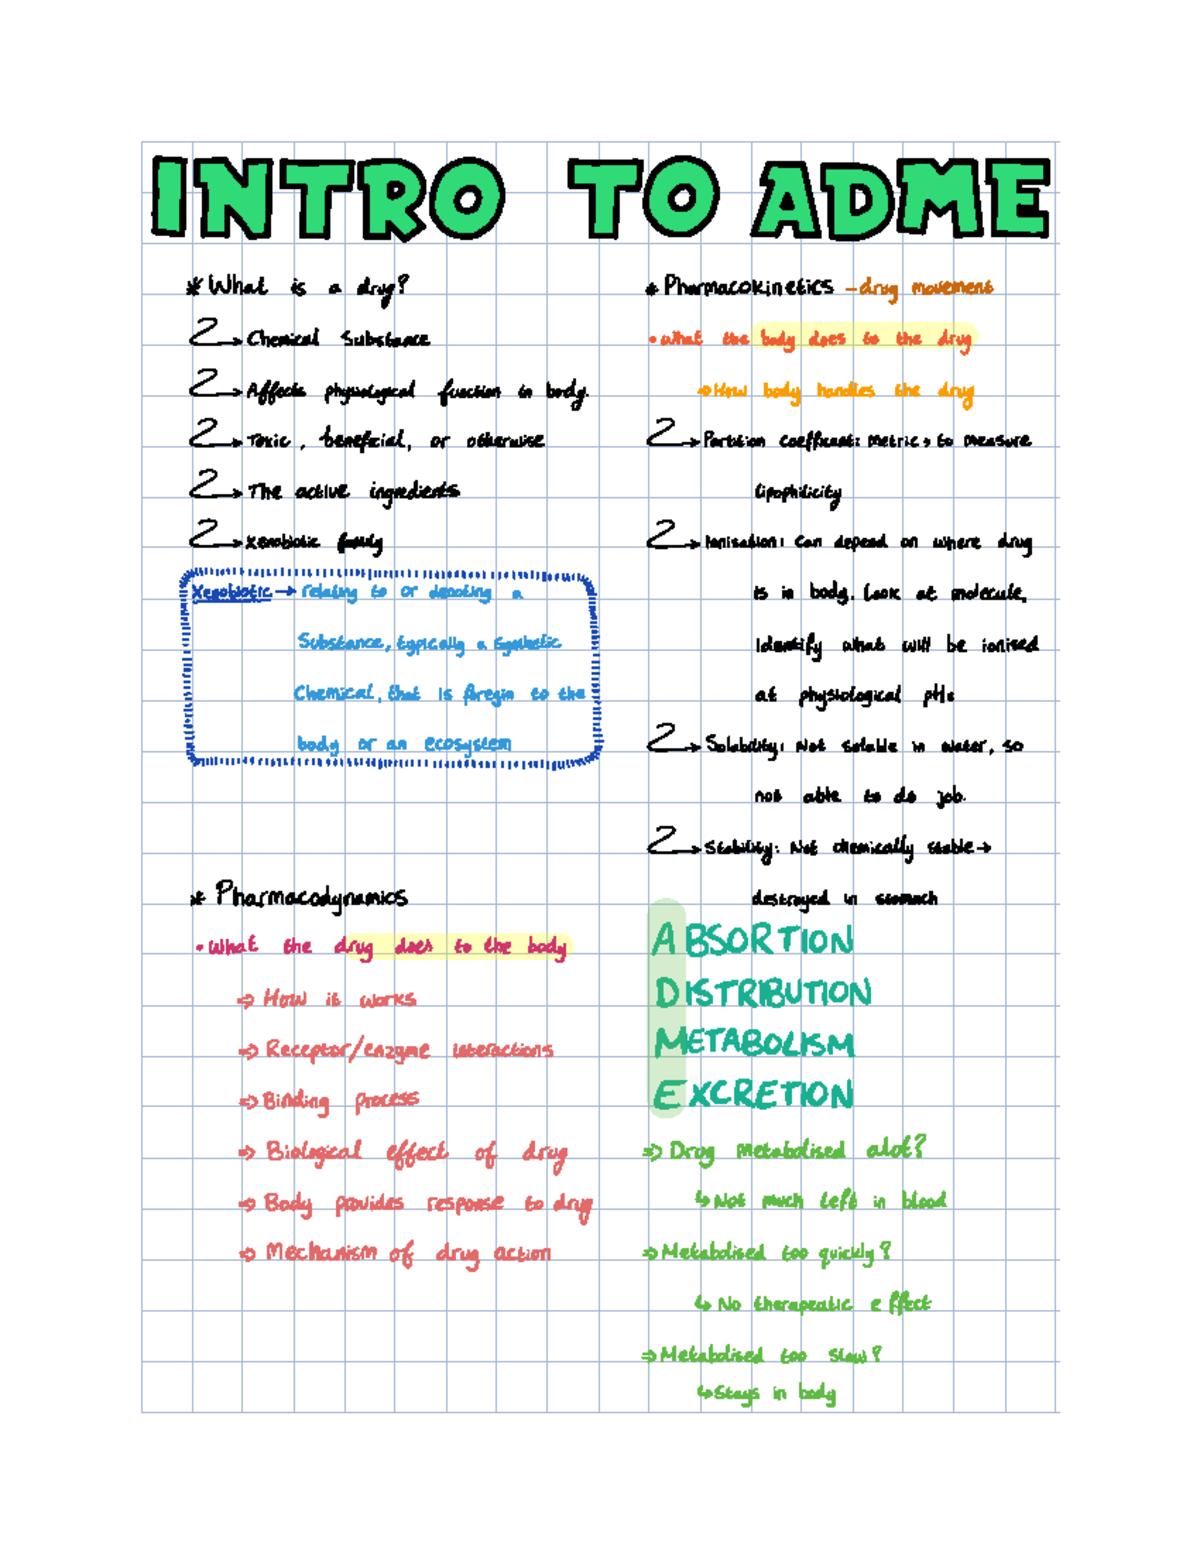 INTRO TO ADME
* What is a drug?
→ Chemical Substance
→ Affects physiological function in body.
→ Toxic, beneficial, or otherwise
→ The active ingredients
→ Xenobiotic family
Xenobiotic → relating to or denoting a
Substance, typically a synthetic
Chemical, that is foregin to the
body or an ecosystem
* Pharmacodynamics
• What the drug does to the body
⇒ How it works
⇒ Receptor/enzyme interactions
⇒ Binding process
⇒ Biological effect of drug
⇒ Body provides response to drug
⇒ Mechanism of drug action
* Pharmacokinetics - drug movement
• What the body does to the drug
⇒ How body handles the drug
→ Partition coefficient: metric → to measure
lipophilicity
→ Ionisation: can depend on where drug
is in body. Look at molecule,
Identify what will be ionised
at physiological pH.
→ Solubility: Not soluble in water, so
not able to do job.
→ Stability: Not chemically stable →
destroyed in stomach
ABSORTION
DISTRIBUTION
METABOLISM
EXCRETION
⇒ Drug metabolised alot?
↳ Not much left in blood
⇒ Metabolised too quickly?
↳ No therapeutic effect
⇒ Metabolised too slow?
↳ Stays in body